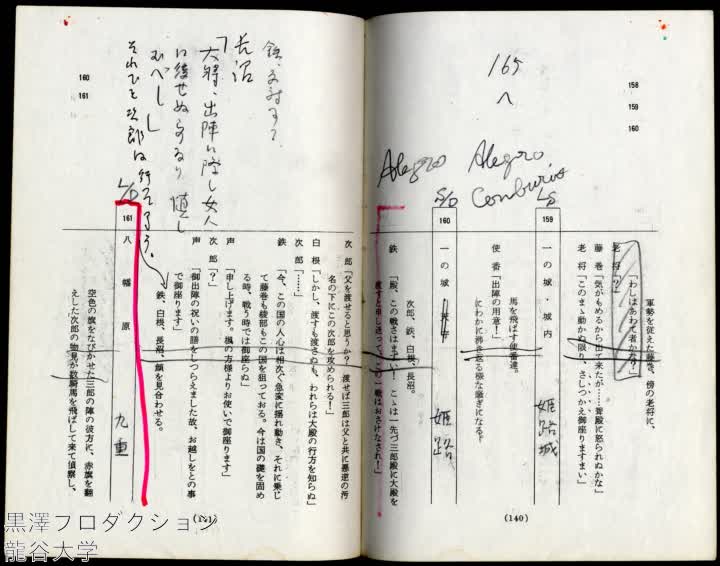 165
へ
158
159
160
Alegro
Conburio
Alegro
L/S
S/D
軍勢を従えた藤巻、傍の老将に、
「わしはあわて者かな?」
老将「?」
藤巻「気がもめるからせて来たが……舅殿に怒られぬかな」
老将「このまゝ動かぬ限り、さしつかえ御座りますまい」
159
一の城・城内
姫路城
馬を飛ばす使番達。
使番「出陣の用意!」
にわかに沸き返る様な騒ぎになる。
160
一の城
姫路
次郎、鉄、白根、長沼。
鉄「殿、この戦さはまずい! こゝは一先づ三郎殿に大殿を
渡すと申し送って、この一戦はおさけなされ!」
(140)
160
161
鉄、反対する
長沼
「大将、出陣に際し女人
に後せぬ
むべし」
それでも次郎は行ってしまう。
次郎「父を渡せると思うか? 渡せば三郎は父と共に悪逆の汚
名の下にこの次郎を攻められる!」
白根「しかし、渡すも渡さぬも、われらは大殿の行方を知らぬ」
次郎「……」
鉄「今、この国の人心は相次ぐ急変に揺れ動き、それに乗じ
て藤巻も綾部もこの国を狙っておる。今は国の礎を固め
る時、戦う時では御座らぬ」
声「申し上げます。楓の方様よりお使いで御座ります」
次郎「?」
声「御出陣の祝いの膳をしつらえました故、お越しをとの事
で御座ります」
鉄、白根、長沼、顔を見合わせる。
L/D
161
八幡原
九重
空色の旗をなびかせた三郎の陣の彼方に、赤旗を翻
えした次郎の物見が数騎馬を飛ばして来て偵察し、
(141)
黒澤プロダクション
龍谷大学